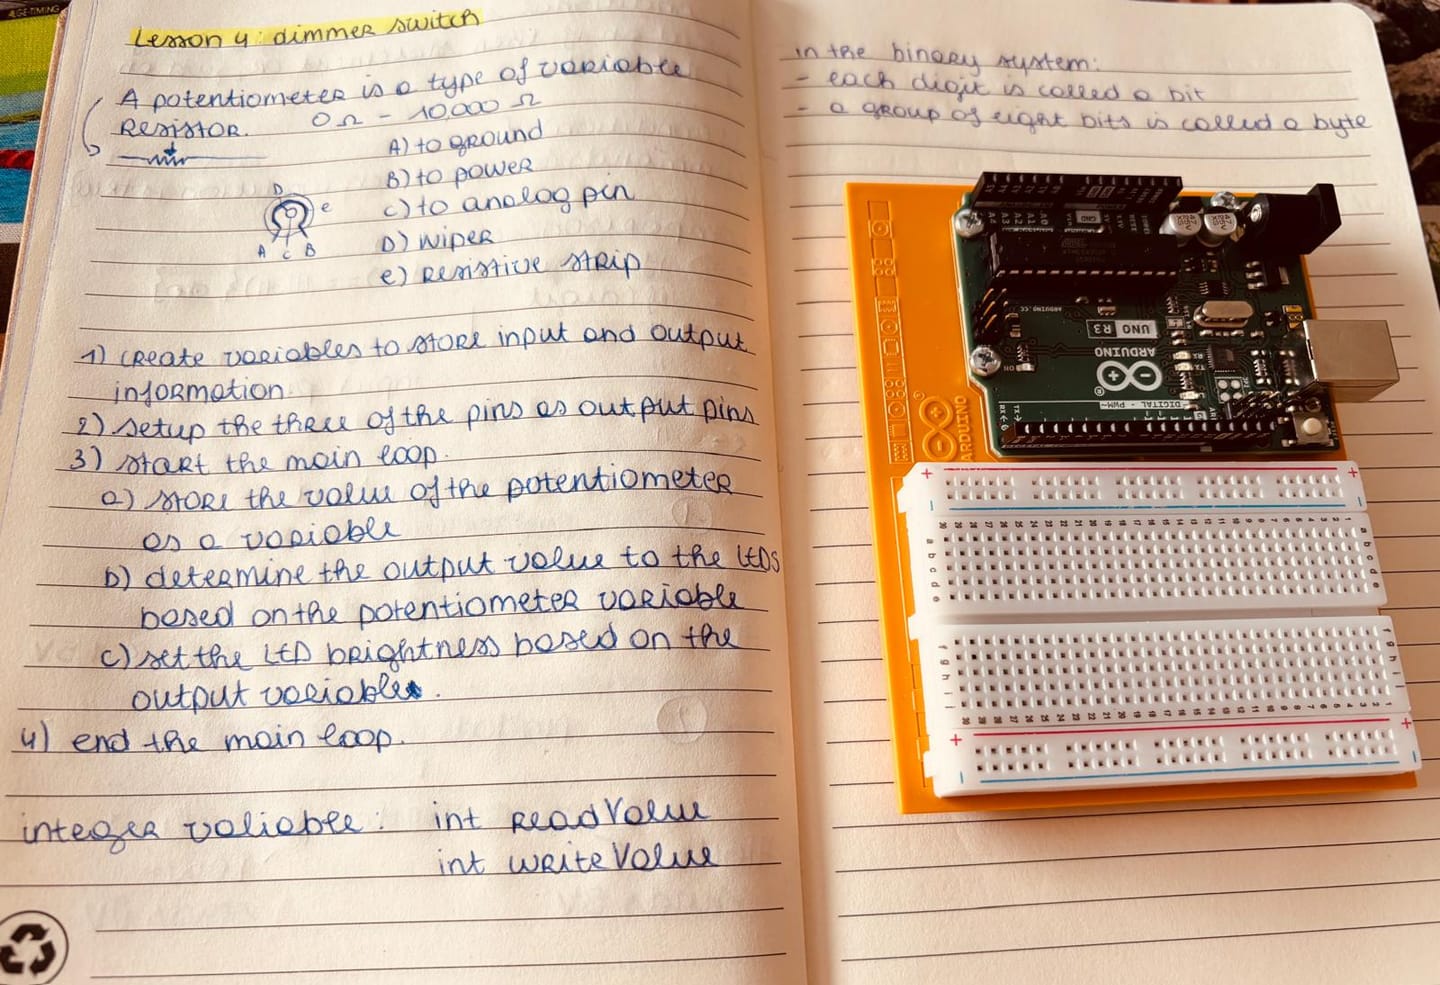 Lesson 4: dimmer switch
A potentiometer is a type of variable
resistor. 0Ω - 10.000 Ω
A) to ground
B) to power
C) to analog pin
D) wiper
e) resistive strip
D
e
A C B
1) create variables to store input and output
information
2) setup the three of the pins as output pins
3) start the main loop.
a) store the value of the potentiometer
as a variable
b) determine the output value to the LEDS
based on the potentiometer variable
c) set the LED brightness based on the
output variable.
4) end the main loop.
integer valiable: int readValue
int writeValue
in the binary system:
- each digit is called a bit
- a group of eight bits is called a byte
UNO R3
ARDUINO
DIGITAL - PWM~
ARDUINO
+ +
- -
30 29 28 27 26 25 24 23 22 21 20 19 18 17 16 15 14 13 12 11 10 9 8 7 6 5 4 3 2 1
a b c d e
a b c d e
f g h i j
f g h i j
30 29 28 27 26 25 24 23 22 21 20 19 18 17 16 15 14 13 12 11 10 9 8 7 6 5 4 3 2 1
+ +
- -